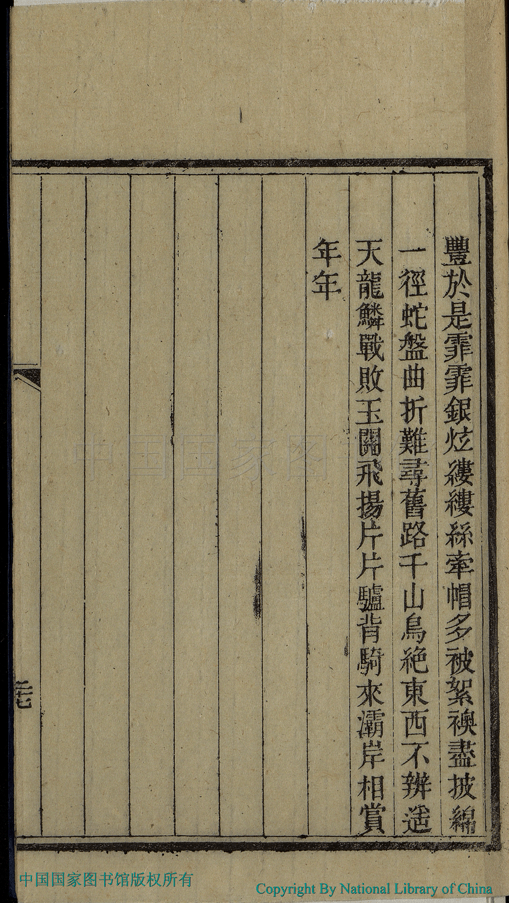 豐於是霏霏銀炫縷縷絲牽帽多被絮襖盡披綿
一徑蛇盤曲折難尋舊路千山鳥絕東西不辨遥
天龍鱗戰敗玉關飛揚片片驢背騎來灞岸相賞
年年
中国国家图书馆版权所有
Copyright By National Library of China